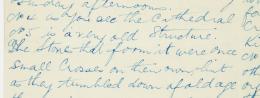 Sunday afternoons.
No 4 is you see the Cathedral
No 5 is a very old structure.
The stones that form it were once
small Crosses on their own, but
as they tumbled down of old age